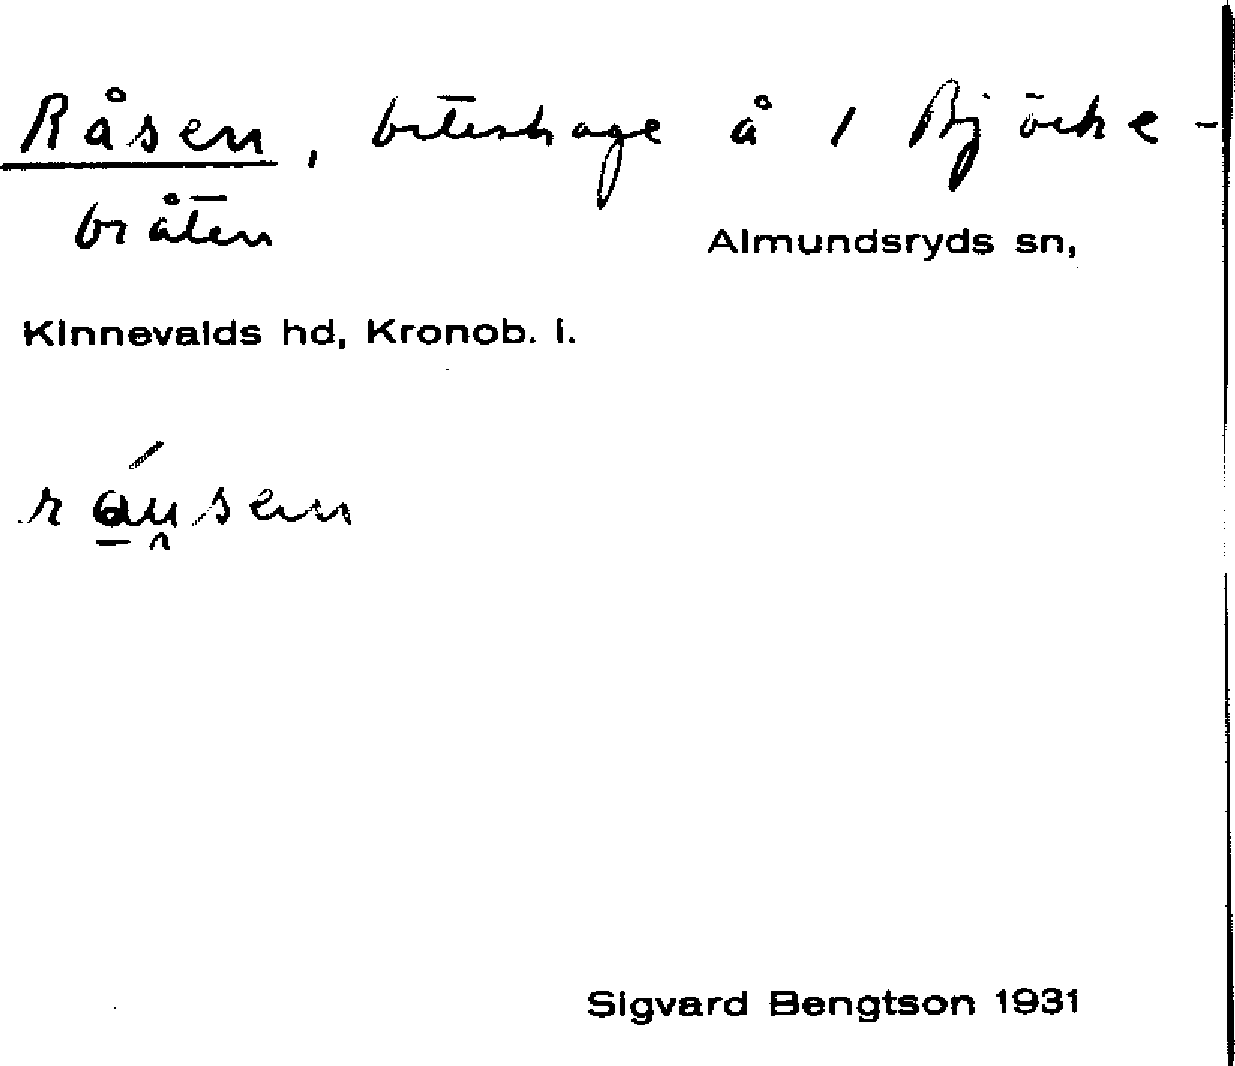 Råsen, beteshage å 1 Björke-
bråten
Almundsryds sn,
Kinnevalds hd, Kronob. l.
ráu̯sen
Sigvard Bengtson 1931